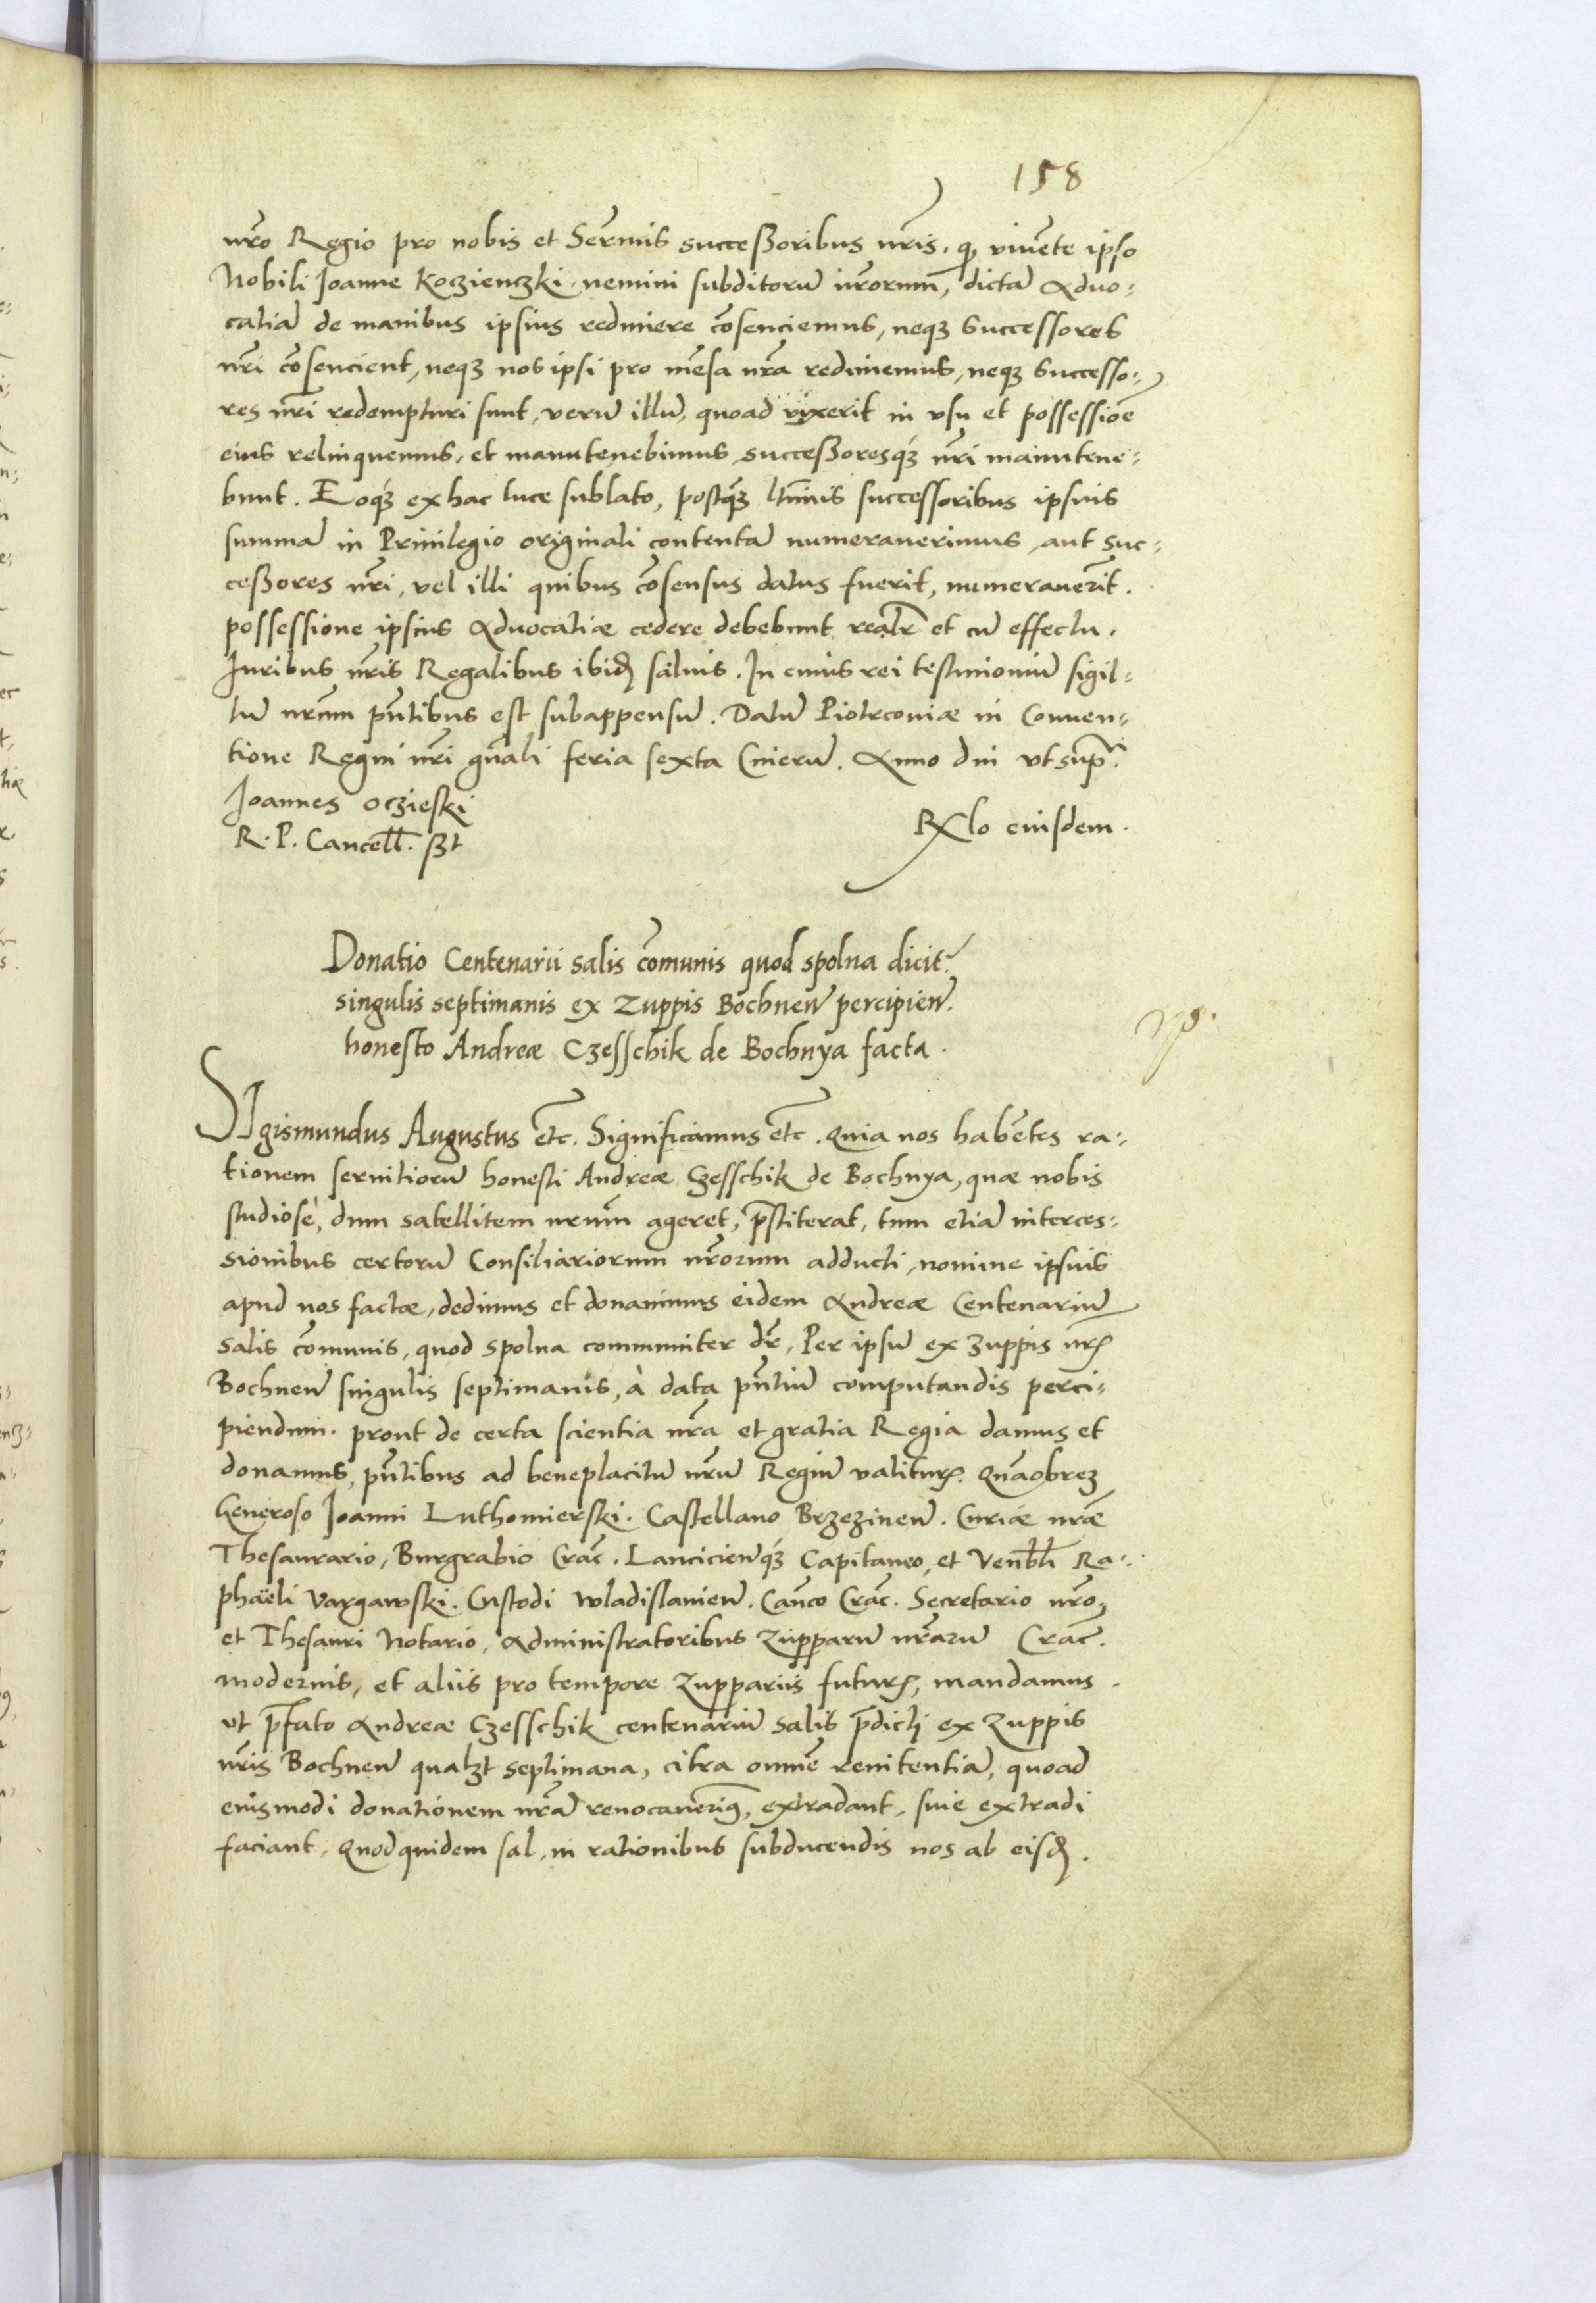 158
nr̃o Regio pro nobis et Serm̃is successoribus nr̃is, q̃ vivẽte ipso
Nobili Joanne Koczienczki, nemini subditorũ nr̃orum, dictã Advo-
catiã de manibus ipsius redimere cõsenciemus, neq3 successores
nr̃i cõsencient, neq3 nos ipsi pro mẽsa nr̃a redimemus, neq3 successo-
res nr̃i redempturi sunt, verũ illũ, quoad vixerit in vsu et possessiõe
eius relinquemus, et manutenebimus, successoresq3 nr̃i manutene-
bunt. Eoq3 ex hac luce sublato, postq̃3 ltĩmis successoribus ipsius
summã in Privilegio originali contentã numeraverimus, aut suc-
cessores nr̃i, vel illi quibus cõsensus datus fuerit, numeraverĩt.
possessione ipsius Advocatiæ cedere debebunt realr̃ et cũ effectu.
Iuribus nr̃is Regalibus ibid̃ salvis. In cuius rei testimoniũ sigil-
lũ nr̃um pñtibus est subappensũ. Datũ Piotrcoviæ in Conven-
tione Regni nr̃i gñali feria sexta Cinerũ. Anno dni vt sup̃.
Joannes Oczieski
R. P. Cancell̃. sst
Rel̃o eiusdem.
Donatio Centenarii salis cõmunis quod spolna dicit̃
singulis septimanis ex Zuppis Bochneñ percipieñ.
honesto Andreæ Czesschik de Bochnya facta.
SIgismundus Augustus etc̃. Significamus etc̃. Quia nos habẽtes ra-
tionem servitiorũ honesti Andreæ Czesschik de Bochnya, quæ nobis
studiosè, dum satellitem nr̃um ageret, p̃stiterat, tum etiã interces-
sionibus certorũ Consiliariorum nr̃orum adducti, nomine ipsius
apud nos factæ, dedimus et donavimus eidem Andreæ Centenariũ
salis cõmunis, quod spolna communiter dr̃, Per ipsũ ex zuppis nr̃
Bochneñ singulis septimanis, à data pñtiũ computandis perci-
piendum. prout de certa scientia nr̃a et gratia Regia damus et
donamus, pñtibus ad beneplacitũ nr̃ũ Regiũ valitur̃. Quãobrez
Generoso Joanni Luthomierski. Castellano Brzezineñ. Curiæ nr̃æ
Thesaurario, Burgrabio Crac̃. Lancicieñq3 Capitaneo, et Ven̄bl̃i Ra-
phaëli Vargawski. Custodi Wladislavieñ. Cañco Crac̃. Secretario nr̃o,
et Thesauri Notario, Administratoribus Zupparũ nr̃arũ Crac̃.
modernis, et aliis pro tempore Zuppariis futur̃, mandamus.
vt p̃fato Andreæ Czesschik centenariũ salis p̃dicti ex Zuppis
nr̃is Bochneñ qualzt septimana, citra omnẽ renitentiã, quoad
eiusmodi donationem nr̃ã revocaverim9, extradant, sive extradi
faciant, Quodquidem sal, in rationibus subducendis nos ab eisd̃.